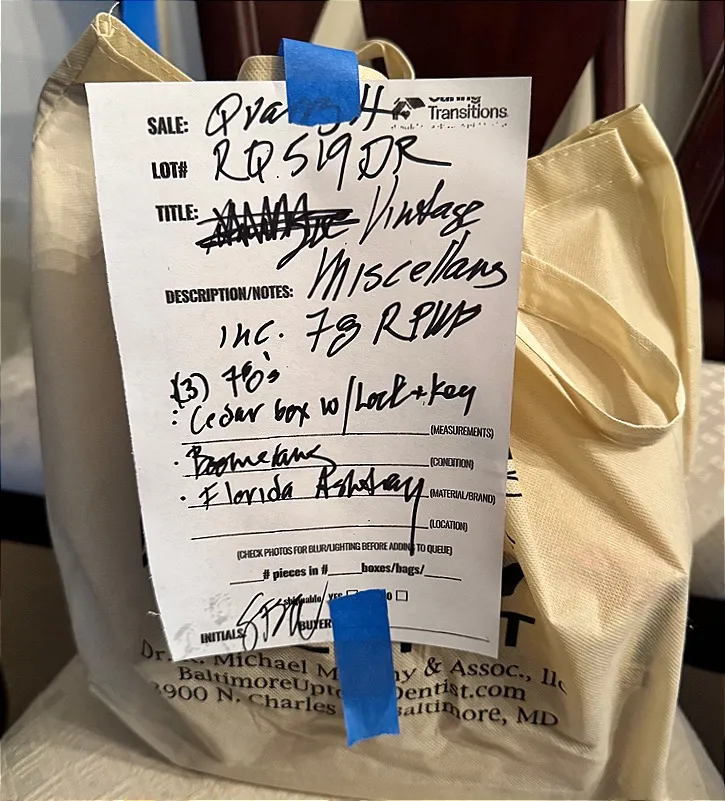 SALE:
Caring
Transitions
LOT# RQ519DR
TITLE: Vintage
Miscellans
DESCRIPTION/NOTES:
inc. 78 RPM
(3) 78's
: Cedar box w/Lock + key
(MEASUREMENTS)
· Boomerang (CONDITION)
· Florida Ashtray (MATERIAL/BRAND)
(LOCATION)
(CHECK PHOTOS FOR BLUR/LIGHTING BEFORE ADDING TO QUEUE)
# pieces in # boxes/bags/
YES
INITIALS: BUYER
Dr. Michael & Assoc., llc
3900 N. Charles Baltimore, MD